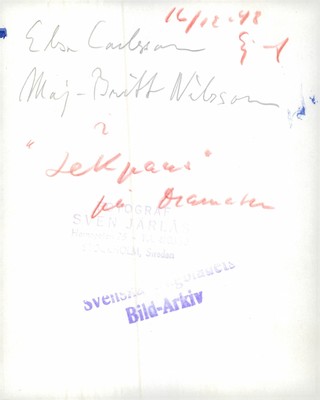 16/12-48
Elsa Carlsson
Maj-Britt Nilsson
i
"Lekpaus"
på Dramaten
FOTOGRAF
SVEN JÄRLÅS
STOCKHOLM, Sweden
Svenska Dagbladets
Bild-Arkiv